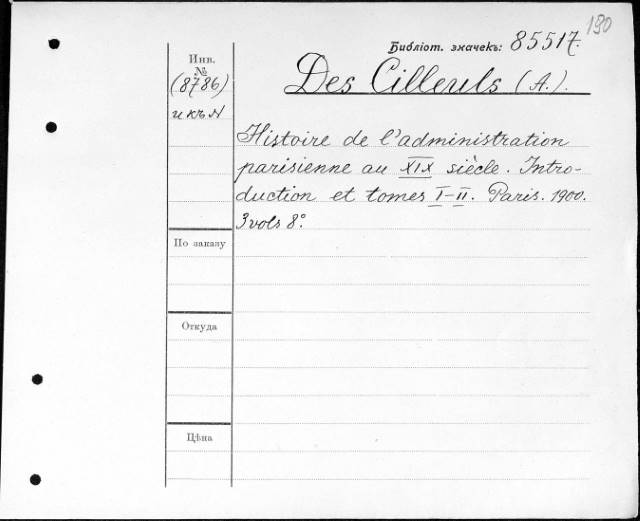 190
Библіот. значекъ: 85517.
Инв.
№
(8786)
и къ N
Des Cilleuls (A.).
Histoire de l'administration
parisienne au XIX siècle. Intro-
duction et tomes I-II. Paris. 1900.
3 vols 8°.
По заказу
Откуда
Цѣна